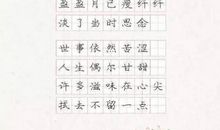 盈盈月已瘦纤纤
淡了当时思念
世事依然苦涩
人生偶尔甘甜
许多滋味在心尖
拭去不留一点